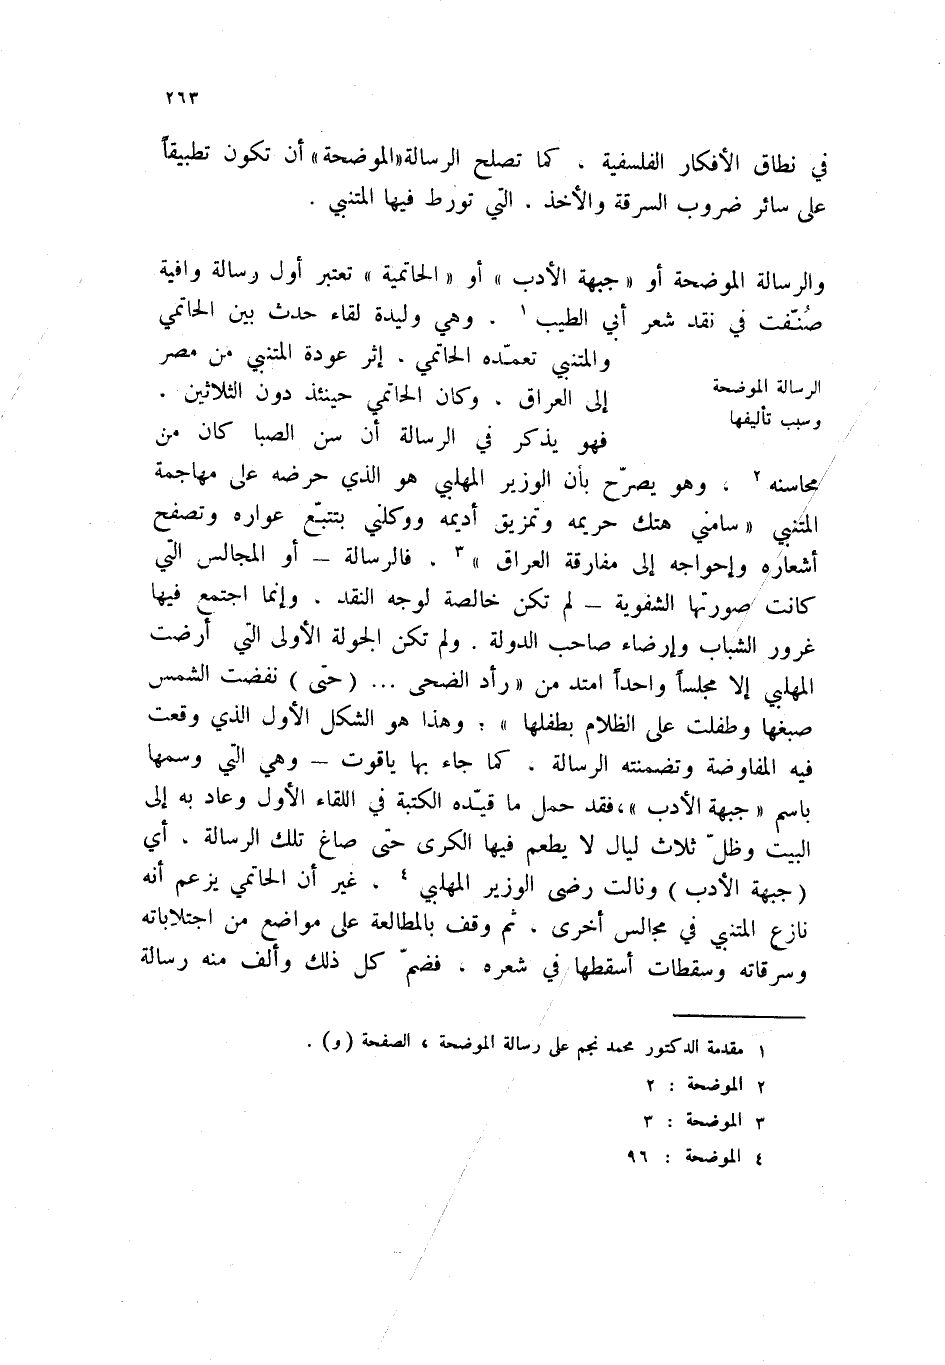 ٢٦٣
في نطاق الأفكار الفلسفية . كما تصلح الرسالة «الموضحة» أن تكون تطبيقاً
على سائر ضروب السرقة والأخذ . التي تورط فيها المتنبي .
والرسالة الموضحة أو « جبهة الأدب » أو « الحاتمية » تعتبر أول رسالة وافية
صُنّفت في نقد شعر أبي الطيب ١ . وهي وليدة لقاء حدث بين الحاتمي
والمتنبي تعمّده الحاتمي . إثر عودة المتنبي من مصر
الرسالة الموضحة
وسبب تأليفها
إلى العراق . وكان الحاتمي حينئذ دون الثلاثين .
فهو يذكر في الرسالة أن سن الصبا كان من
محاسنه ٢ . وهو يصرّح بأن الوزير المهلبي هو الذي حرضه على مهاجمة
المتنبي « سامني هتك حريمه وتمزيق أديمه ووكلني بتتبّع عواره وتصفح
أشعاره وإحواجه إلى مفارقة العراق » ٣ . فالرسالة – أو المجالس التي
كانت صورتها الشفوية – لم تكن خالصة لوجه النقد . وإنما اجتمع فيها
غرور الشباب وإرضاء صاحب الدولة . ولم تكن الجولة الأولى التي أرضت
المهلبي إلا مجلساً واحداً امتد من « رأد الضحى ... ( حتى ) نفضت الشمس
صبغها وطفلت على الظلام بطفلها » : وهذا هو الشكل الأول الذي وقعت
فيه المفاوضة وتضمنته الرسالة . كما جاء بها ياقوت – وهي التي وسمها
باسم « جبهة الأدب »،فقد حمل ما قيّده الكتبة في اللقاء الأول وعاد به إلى
البيت وظلّ ثلاث ليال لا يطعم فيها الكرى حتى صاغ تلك الرسالة . أي
( جبهة الأدب ) ونالت رضى الوزير المهلبي ٤ . غير أن الحاتمي يزعم أنه
نازع المتنبي في مجالس أخرى . ثم وقف بالمطالعة على مواضع من اجتلاباته
وسرقاته وسقطات أسقطها في شعره . فضمّ كل ذلك وألف منه رسالة
١ مقدمة الدكتور محمد نجم على رسالة الموضحة ، الصفحة (و) .
٢ الموضحة : ٢
٣ الموضحة : ٣
٤ الموضحة : ٩٦